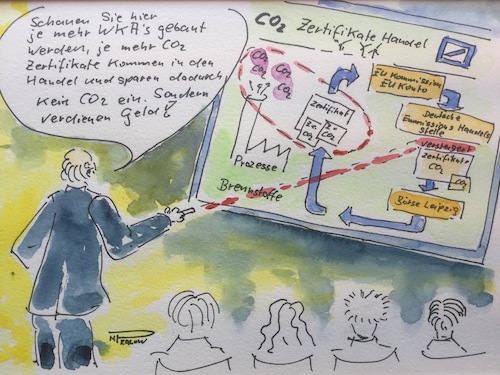 Schauen Sie hier
je mehr WKA's gebaut
werden, je mehr CO2
Zertifikate kommen in den
Handel und sparen dadurch
kein CO2 ein. Sondern
verdienen Geld?
CO2 Zertifikate Handel
CO2
CO2
CO2
CO2
Zertifikat
CO2
CO2
Prozesse
Brennstoffe
EU Kommission
EU Konto
Deutsche
Emissions Handels
stelle
versteigert
Zertifikat
CO2
CO2
Börse Leipzig